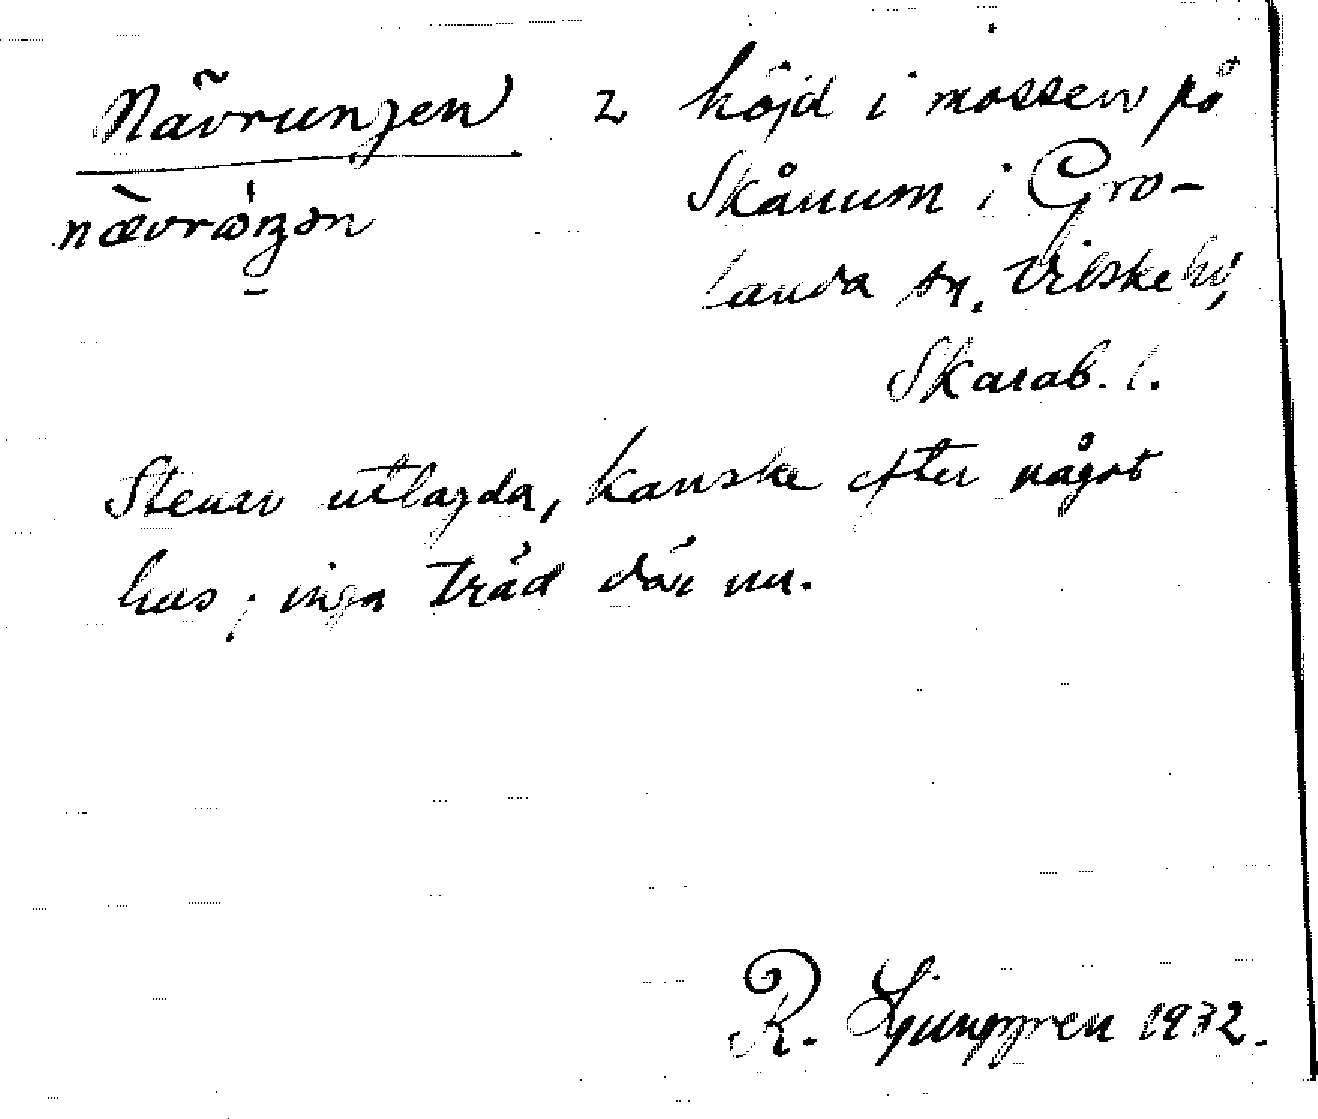 Nävrungen 2 höjd i mossen på
Skånum i Gro-
nævrꙍŋən
landa sn. Vilske hd,
Skarab. l.
Stenar utlagda, kanske efter något
hus; inga träd där nu.
R. Ljunggren 1932.